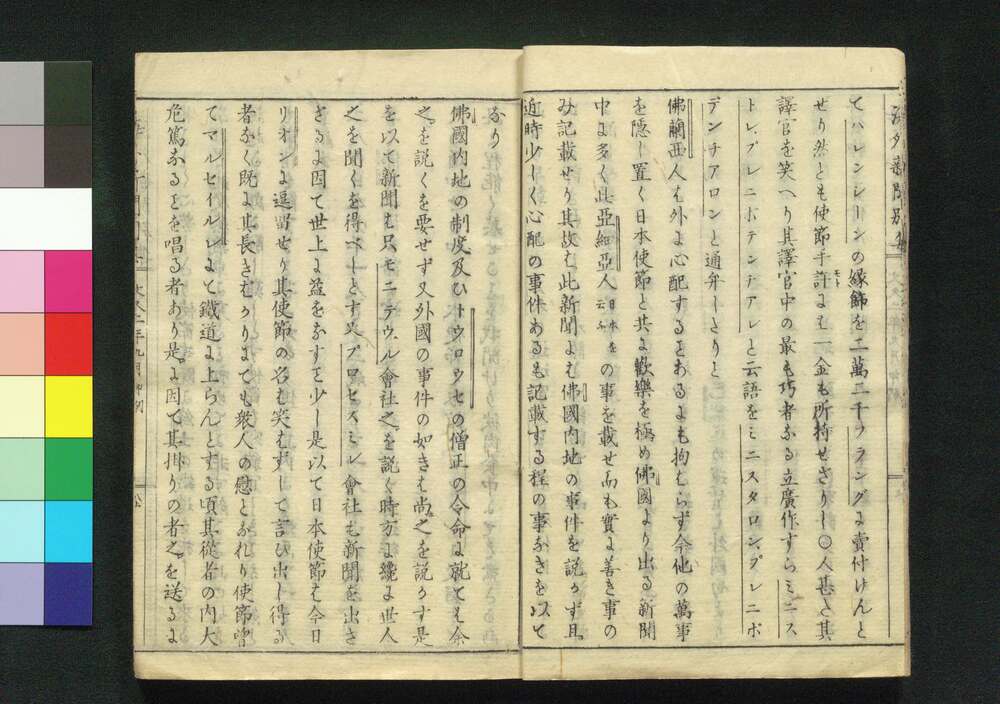 てハレンシーンの縁飾を二萬二千フランクよ賣付けんと
せり然とも使節手許よも一金も所持せざりし〇人甚さ其
譯官を笑へり其譯官中の最も巧者なる立廣作すらミニス
トレ、プレニポテンチアレと云語をミニスタロン、プレニポ
デンチアロンと通弁しさりと
佛蘭西人も外よ心配するをあるよも拘もらず令他の萬事
を隠し置く日本使節と共よ歓樂を極め佛國より出る新聞
中よ多く此亞細亞人日本を云ふの事を載せ而も實よ善き事の
み記載せり其故も此新聞よも佛國内地の事件を説かず且
近時少しく心配の事件あるも記載する程の事なきを以て
なり
佛國内地の制度及ひトウロウセの僧正の令命よ就ても余
之を説くを要せず又外國の事件の如きも尚之を説かす是
を以て新聞も只モニテウル會社之を説く時方よ纔よ世人
之を聞くを得べしとす又プロセスミル會社も新聞を出さ
ざるよ因て世上よ益をなすを少し是以て日本使節も今日
リオンよ逗留せり其使節の名も笑もずして言ひ出し得る
者なく既よ其長きむかりまても衆人の慰となれり使節嘗
てマルセイルレよて鐵道よ上らんとする頃其從者の内大
危篤なるを唱る者あり是よ因て其掛りの者之を送るよ